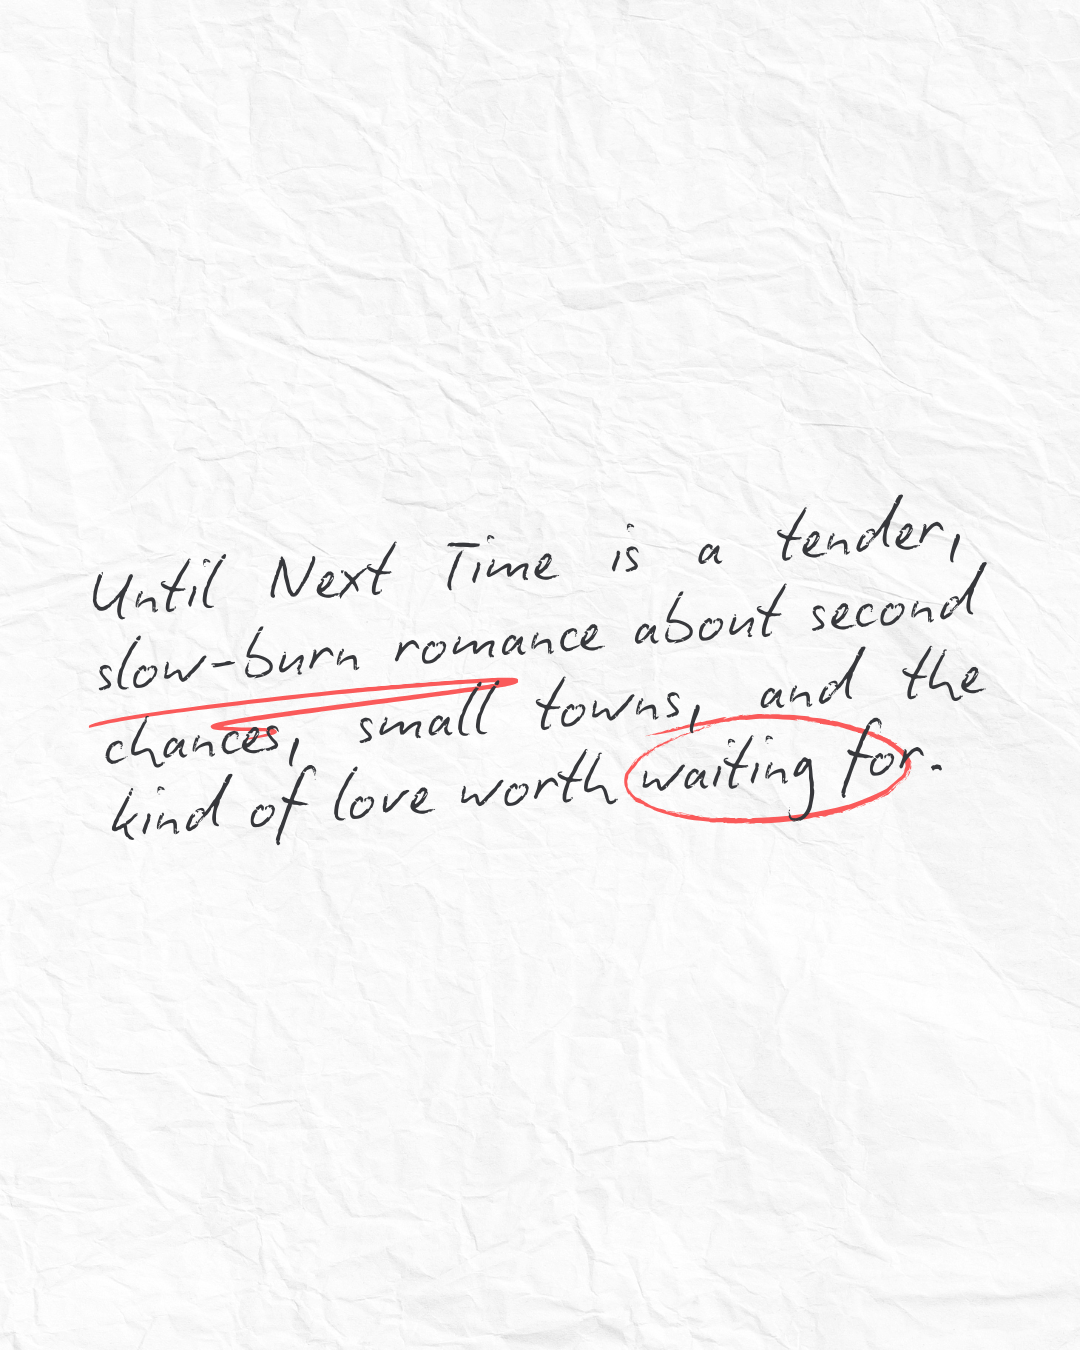 Until Next Time is a tender,
slow-burn romance about second
chances, small towns, and the
kind of love worth waiting for.